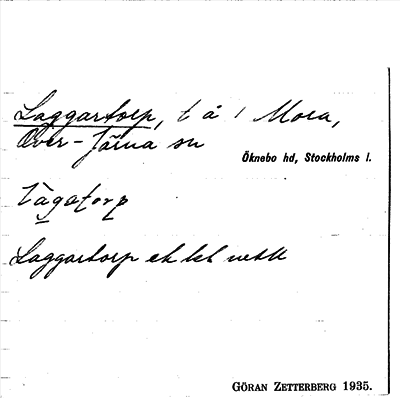 Laggartorp, t å 1 Mora,
Över-Järna sn
Öknebo hd, Stockholms l.
Lagatorp
Laggartorp ek bl
GÖRAN ZETTERBERG 1935.